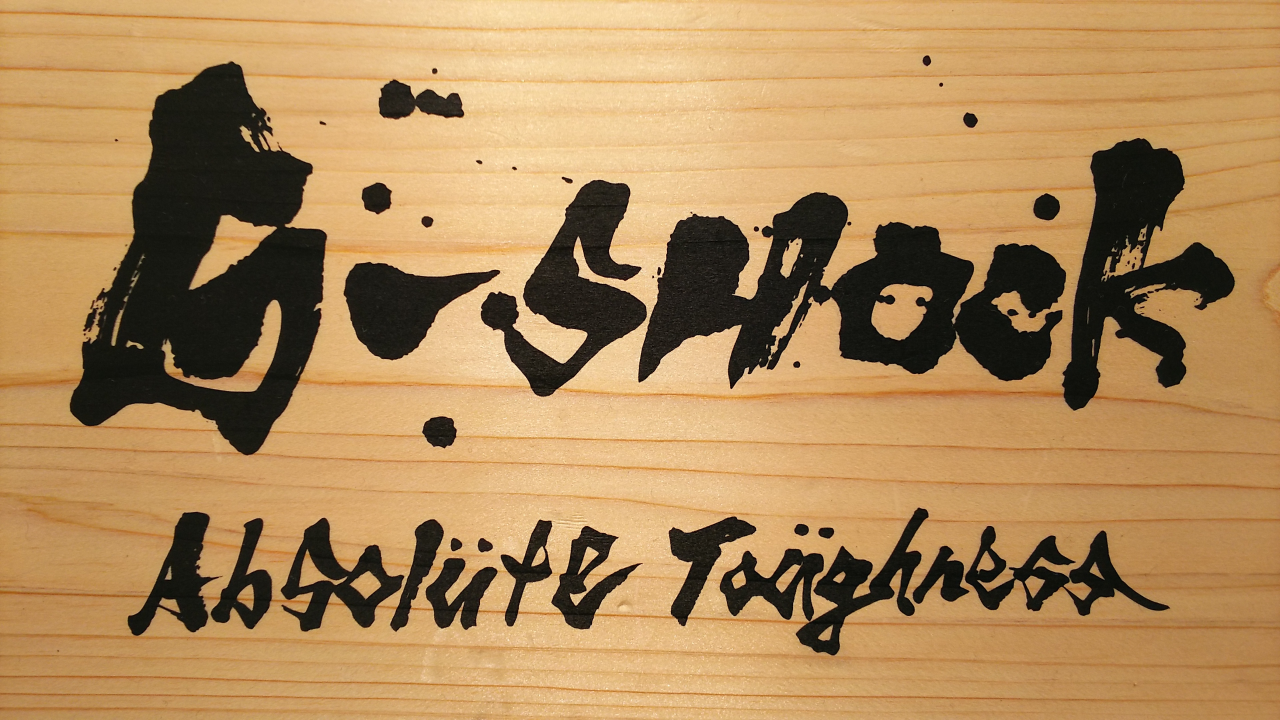 G-SHOCK
Absolüte Toüghness